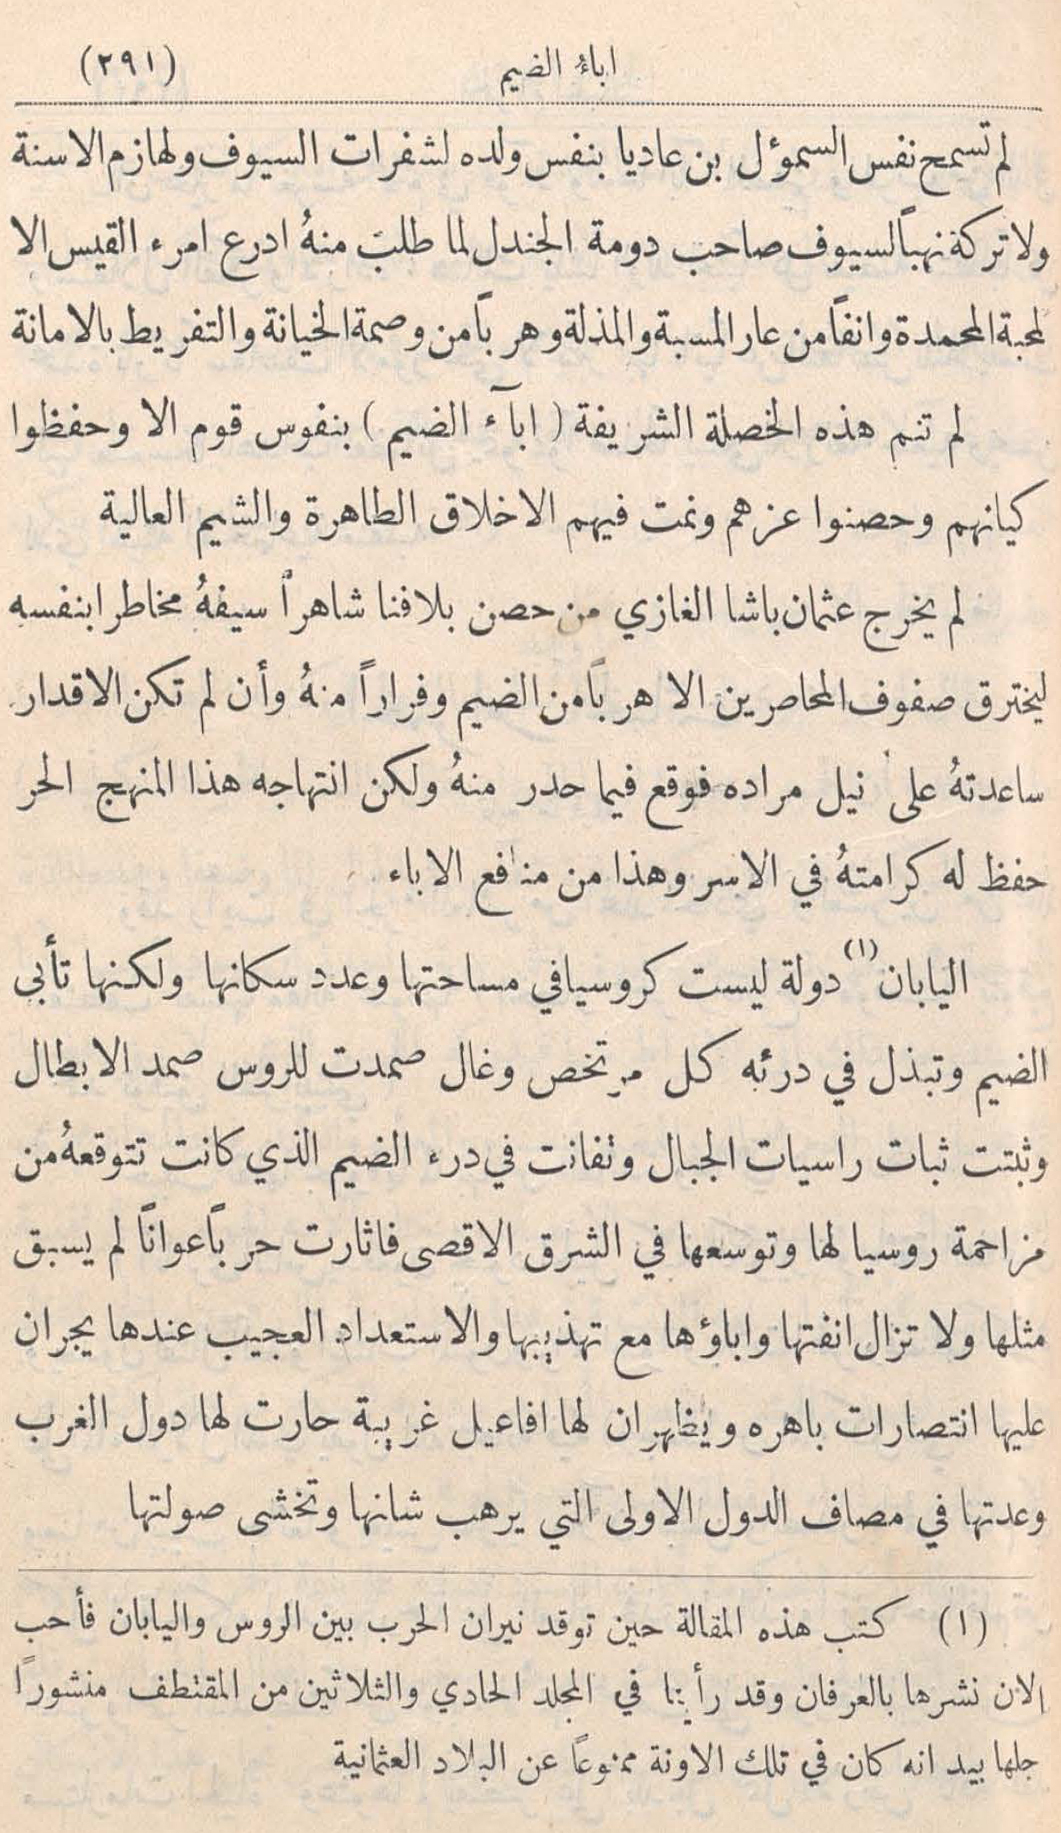 اباءُ الضيم
(٢٩١)
لم تسمح نفس السموءل بن عاديا بنفس ولده لشفرات السيوف ولهازم الاسنة
ولا تركة نهباً لسيوف صاحب دومة الجندل لما طلب منهُ ادرع امرء القيس الا
لمحبة المحمدة وانفاً من عار المسبة والمذلة وهرباً من وصمة الخيانة والتفريط بالامانة
لم تنم هذه الخصلة الشريفة ( اباَء الضيم ) بنفوس قوم الا وحفظوا
كيانهم وحصنوا عزهم ونمت فيهم الاخلاق الطاهرة والشيم العالية
لم يخرج عثمان باشا الغازي من حصن بلافنا شاهراً سيفهُ مخاطرا بنفسه
ليخترق صفوف المحاصرين الا هرباً من الضيم وفراراً منهُ وأن لم تكن الاقدار
ساعدتهُ على نيل مراده فوقع فيما حدر منهُ ولكن انتهاجه هذا المنهج الحر
حفظ له كرامتهُ في الاسر وهذا من منافع الاباء
اليابان (١) دولة ليست كروسيا في مساحتها وعدد سكانها ولكنها تأبى
الضيم وتبذل في درئه كل مرتخص وغال صمدت للروس صمد الابطال
وثبتت ثبات راسيات الجبال وتفانت في درء الضيم الذي كانت تتوقعهُ من
مزاحمة روسيا لها وتوسعها في الشرق الاقصى فاثارت حرباً عواناً لم يسبق
مثلها ولا تزال انفتها واباؤها مع تهذيبها والاستعداد العجيب عندها يجران
عليها انتصارات باهره ويظهران لها افاعيل غريبة حارت لها دول الغرب
وعدتها في مصاف الدول الاولى التي يرهب شانها وتخشى صولتها
(١) كتب هذه المقالة حين توقد نيران الحرب بين الروس واليابان فأحب
الان نشرها بالعرفان وقد رأينا في المجلد الحادي والثلاثين من المقتطف منشوراً
جلها بيد انه كان في تلك الاونة ممنوعاً عن البلاد العثمانية